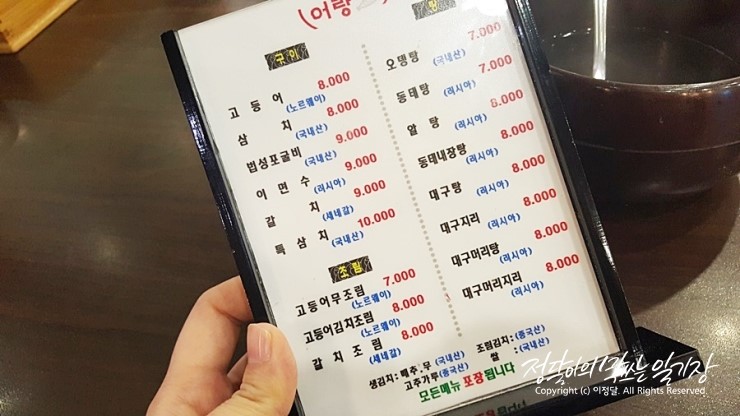 (어랑
구이
고등어 8.000
(노르웨이)
삼치 8.000
(국내산)
법성포굴비 9.000
(국내산)
이면수 9.000
(러시아)
갈치 9.000
(세네갈)
특삼치 10.000
(국내산)
조림
고등어무조림 7.000
(노르웨이)
고등어김치조림 8.000
(노르웨이)
갈치조림 8.000
(세네갈)
탕
오뎅탕 7.000
(국내산)
동태탕 7.000
(러시아)
알탕 8.000
(러시아)
동태내장탕 8.000
(러시아)
대구탕 8.000
(러시아)
대구지리 8.000
(러시아)
대구머리탕 8.000
(러시아)
대구머리지리 8.000
(러시아)
생김치: 배추.무(국내산) 조림김치:(중국산)
고추가루(중국산) 쌀 :(국내산)
모든메뉴 포장됩니다
Copyright (c) 이정달. All Rights Reserved.